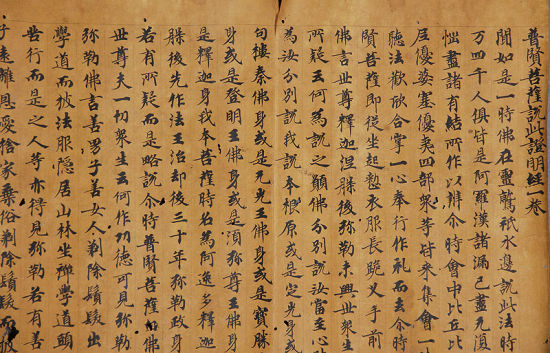 普賢菩薩說此證明經一卷
聞如是一時佛在靈鷲祇水邊說此法時
万四千人俱皆是阿羅漢諸漏已盡无復
惱盡諸有結所作以辨尒時會中比丘比
丘優婆塞優婆夷四部衆等皆來集會一
聽法歡欣合掌一心奉行作礼而去尒時
賢菩薩即從坐起整衣服長跪叉手前
佛言世尊釋迦涅槃後弥勒未興世衆生
所疑云何為說之願佛分別說汝當至心
為汝分別說我說本根原或是定光身或
句樓秦佛身或是无光王佛身或是寶勝
身或是登明王佛身或是須弥尊王佛身
是釋迦身我本菩薩時名為阿逸多釋迦
槃後先作法王治却後三十年弥勒政身
若有所疑而是略說尒時普賢菩薩白佛
世尊夫一切衆生云何作功德可見弥勒
弥勒佛言善男子善女人剃除鬚髮出
學道而被法服隱居山林坐禪學道頭
苦行而是之人等亦得見弥勒若有善
子遠離恩愛捨家棄俗剃除鬚髮而